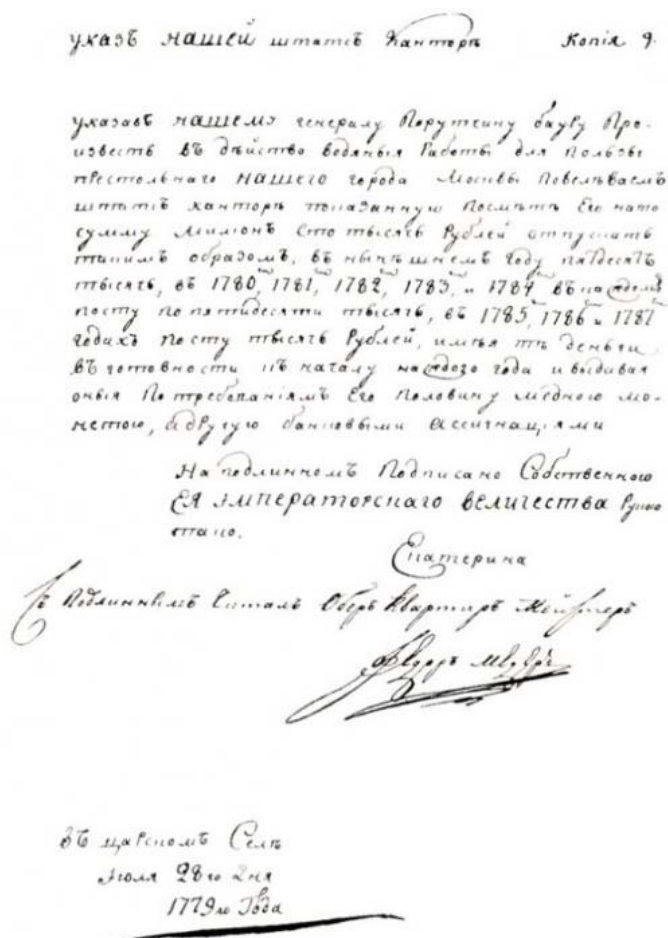 указъ нашей штатсъ канторѣ Копія 9.
указавъ нашему генералу Порутчику бауру Про-
известь въ дѣйство водяныя Работы для Пользы
престольнаго нашего города Москвы Повелѣваемъ
штатсъ канторѣ показанную Посмѣтѣ Его нато
сумму Миліонъ сто тысячь Рублей отпускать
такимъ образомъ, въ нынѣшнемъ году пятдесятъ
тысячь, въ 1780, 1781, 1782, 1783, и 1784 въкаждомъ
посту по пятидесяти тысячь, въ 1785, 1786 и 1787
годахъ посту тысячь Рублей, имѣя тѣ деньги
въ готовности къ началу каждаго года и выдавая
оныя По требованіямъ Его Половину мѣдною мо-
нетою, адругую банковыми Ассигнаціями
На подлинномъ Подписано Собственною
ЕЯ императорскаго величества Руко
тако.
Екатерина
Съ Подлиннымъ Читалъ Оберъ Квартиръ Мейстеръ
Въ царскомъ Селѣ
Іюля 28 го дня
1779 го Года